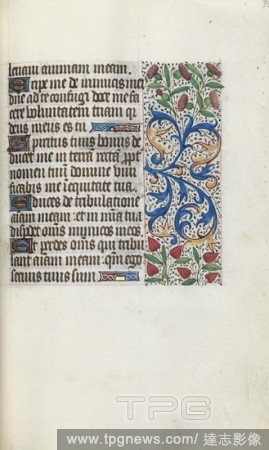 levavi animam meam.
Eripe me de inimicis meis
domine ad te confugi doce me fa
cere voluntatem tuam q
deus meus es tu
Spiritus tuus bonus de
ducet me in terra recta, ppt
nomen tuum domine vivi
ficabis me i equitate tua
Educes de tribulatione
aiam meam: et in mia tua
disperdes omis inimicos meos
Et perdes omis qui tribu
lant aiam meam: qm ego
servus tuus sum
TPG
www.tpgnews.com/達志影像